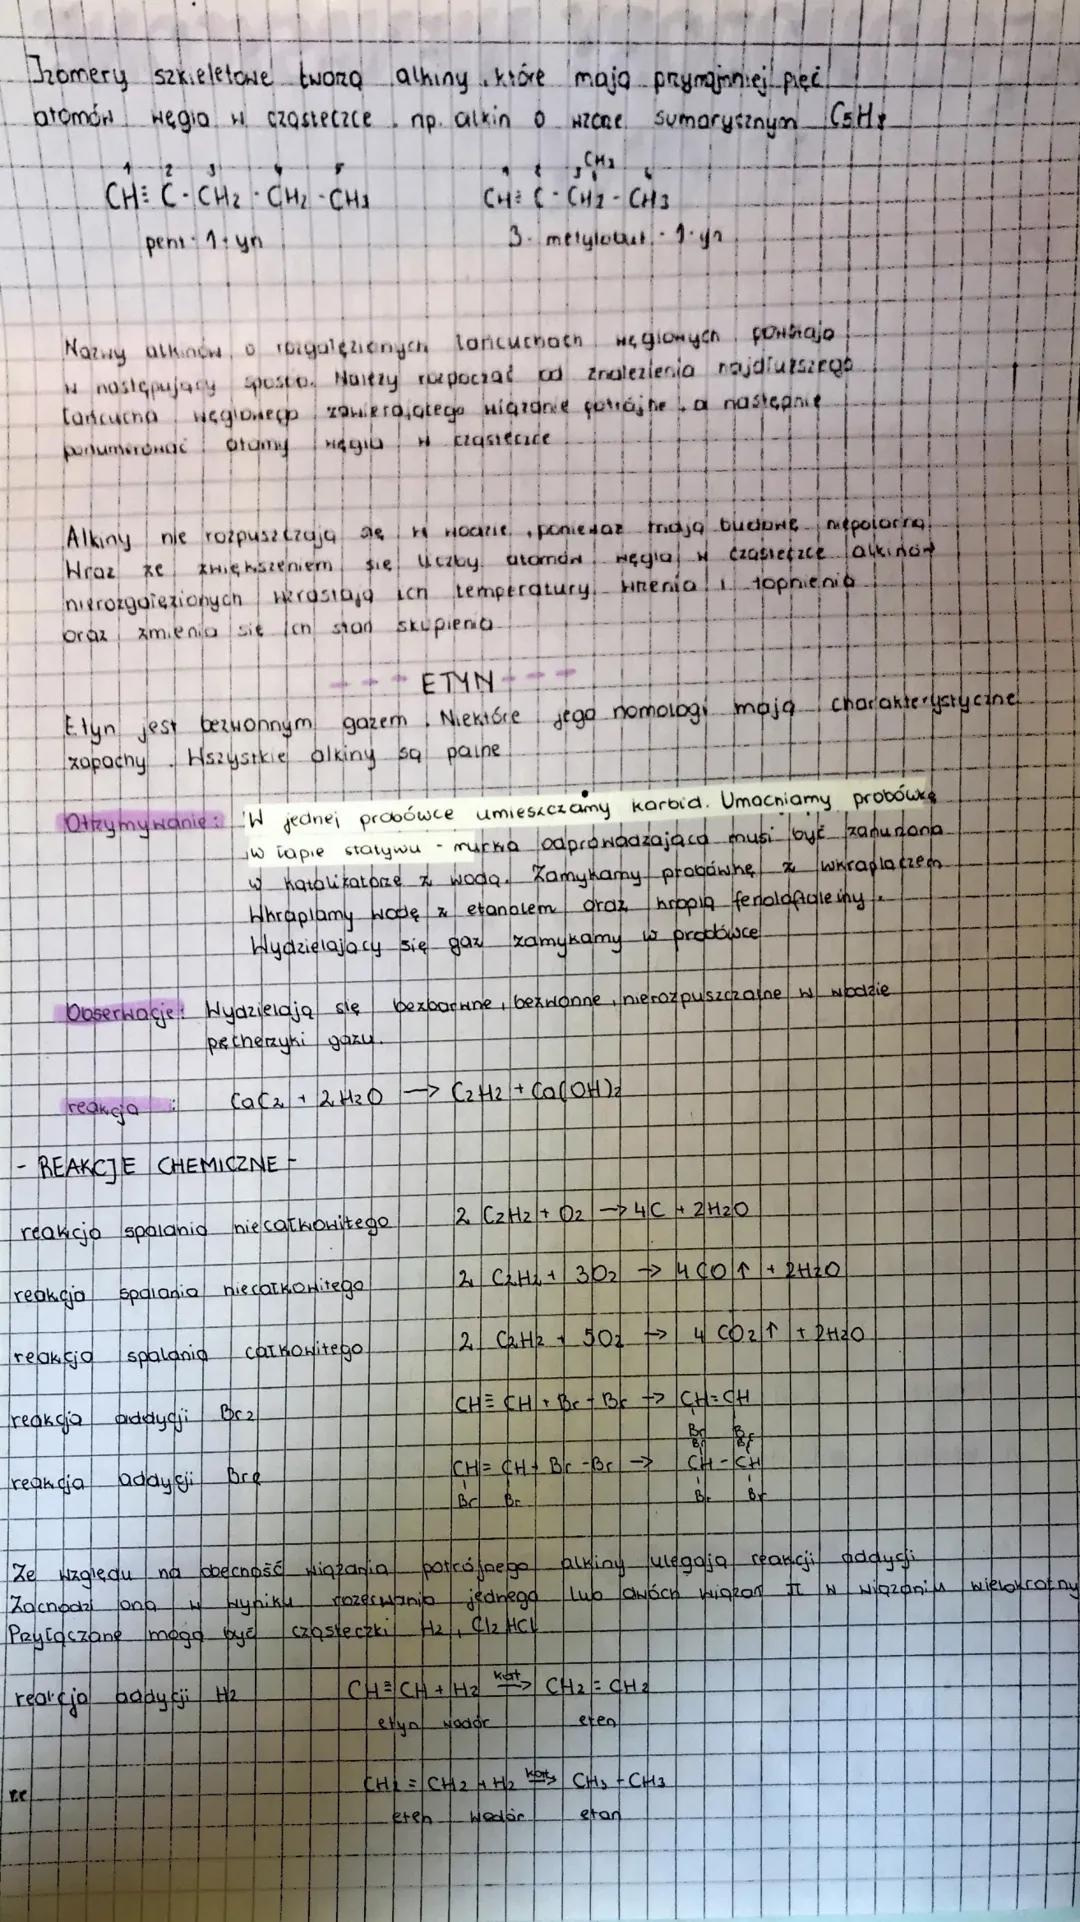 Izomery szkieletowe tworzą alkiny, które mają przynajmniej pięć
atomów węgla w cząsteczce, np. alkin o wzorze sumarycznym C5H8
1 2 3 4 5
CH≡C-CH2-CH2-CH3
pent-1-yn
CH3
1 2 3 4
CH≡C-CH2-CH3
3-metylobut-1-yn
Nazwy alkinów o rozgałęzionych łańcuchach węglowych powstają
w następujący sposób. Należy rozpocząć od znalezienia najdłuższego
łańcucha węglowego zawierającego wiązanie potrójne, a następnie
ponumerować atomy węgla w cząsteczce
Alkiny nie rozpuszczają się w wodzie, ponieważ mają budowę niepolarną.
Wraz ze zwiększeniem się liczby atomów węgla w cząsteczce alkinów
nierozgałęzionych wzrastają ich temperatury wrzenia i topnienia
oraz zmienia się ich stan skupienia
--- ETYN ---
Etyn jest bezwonnym gazem. Niektóre jego homologi mają charakterystyczne
zapachy. Wszystkie alkiny są palne
Otrzymywanie: W jednej probówce umieszczamy karbid. Umacniamy probówkę
w łapie statywu - rurka odprowadzająca musi być zanurzona
w katalizatorze z wodą. Zamykamy probówkę z wkraplaczem
Wkraplamy wodę z etanolem oraz kroplą fenoloftaleiny.
Wydzielający się gaz zamykamy w probówce
Obserwacje: Wydzielają się bezbarwne, bezwonne, nierozpuszczalne w wodzie
pęcherzyki gazu.
reakcja : CaC2 + 2H2O → C2H2 + Ca(OH)2
- REAKCJE CHEMICZNE -
reakcja spalania niecałkowitego 2 C2H2 + O2 → 4C + 2H2O
reakcja spalania niecałkowitego 2 C2H2 + 3O2 → 4 CO↑ + 2H2O
reakcja spalania całkowitego 2 C2H2 + 5O2 → 4 CO2↑ + 2H2O
reakcja addycji Br2 CH≡CH + Br-Br → CH=CH
Br Br
Br Br
reakcja addycji Br2 CH=CH + Br-Br → CH-CH
Br Br Br Br
Ze względu na obecność wiązania potrójnego alkiny ulegają reakcji addycji
Zachodzi ona w wyniku rozerwania jednego lub dwóch wiązań π w wiązaniu wielokrotny
Przyłączane mogą być cząsteczki H2, Cl2 HCl
reakcja addycji H2 CH≡CH + H2 kat→ CH2=CH2
etyn wodór eten
re CH2=CH2 + H2 kat→ CH3-CH3
eten wodór etan